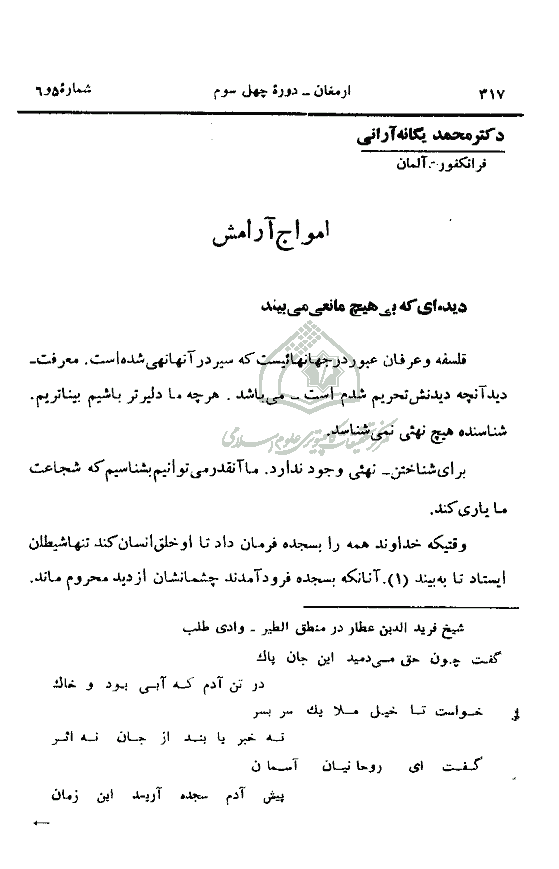 ۳۱۷ ارمغان ـ دورهٔ چهل سوم شمارهٔ ۵و۶
دکتر محمد یگانه آرانی
فرانکفورت ـ آلمان
امواج آرامش
دیده‌ای که بی هیچ مانعی می‌بیند
فلسفه و عرفان عبور در جهانهائیست که سیر در آنها نهی شده است. معرفت ـ
دید آنچه دیدنش تحریم شدم است ـ می‌باشد. هرچه ما دلیرتر باشیم بیناتریم.
شناسنده هیچ نهئی نمی‌شناسد.
برای شناختن ـ نهئی وجود ندارد. ما آنقدر می‌توانیم بشناسیم که شجاعت
ما یاری کند.
وقتیکه خداوند همه را بسجده فرمان داد تا او خلق انسان کند تنها شیطان
ایستاد تا به‌بیند (۱). آنانکه بسجده فرود آمدند چشمانشان از دید محروم ماند.
شیخ فرید الدین عطار در منطق الطیر ـ وادی طلب
گفت چون حق می‌دمید این جان پاك
در تن آدم که آبی بود و خاك
خواست تا خیل ملایك سر بسر
نه خبر یابند از جان نه اثر
گفت ای روحانیان آسمان
پیش آدم سجده آرید این زمان
←
مرکز تحقیقات کامپیوتری علوم اسلامی